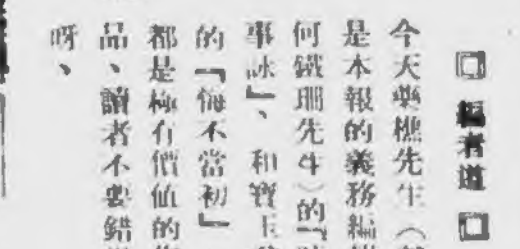 編者道
今天藥樵先生（
是本報的義務編
何鐵珊先生）的『
事詠』、和寶玉
的『悔不當初』
都是極有價值的
品、讀者不要錯
呀、